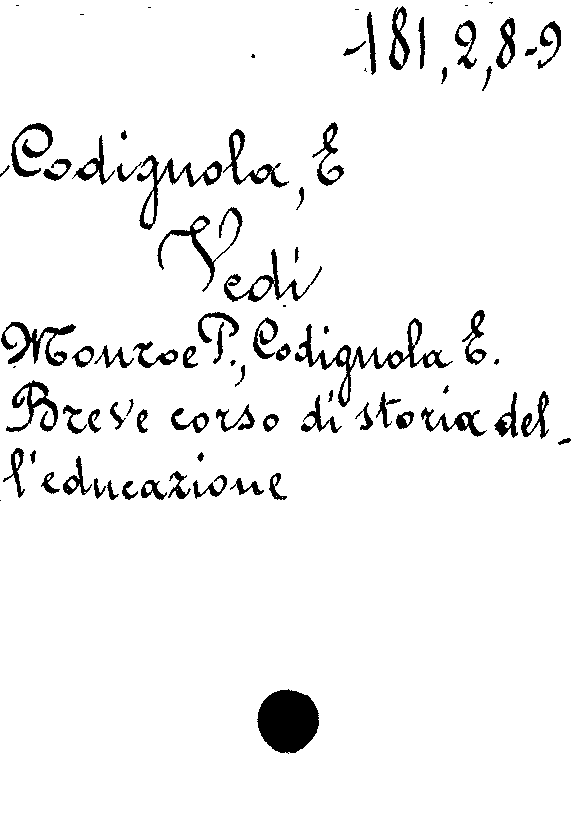 181,2,8-9
Codignola, E
Vedi
Monroe P., Codignola E.
Breve corso di storia del-
l'educazione